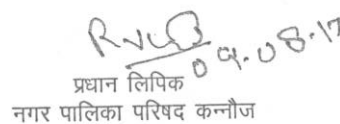 09.08.17
प्रधान लिपिक
नगर पालिका परिषद कन्नौज